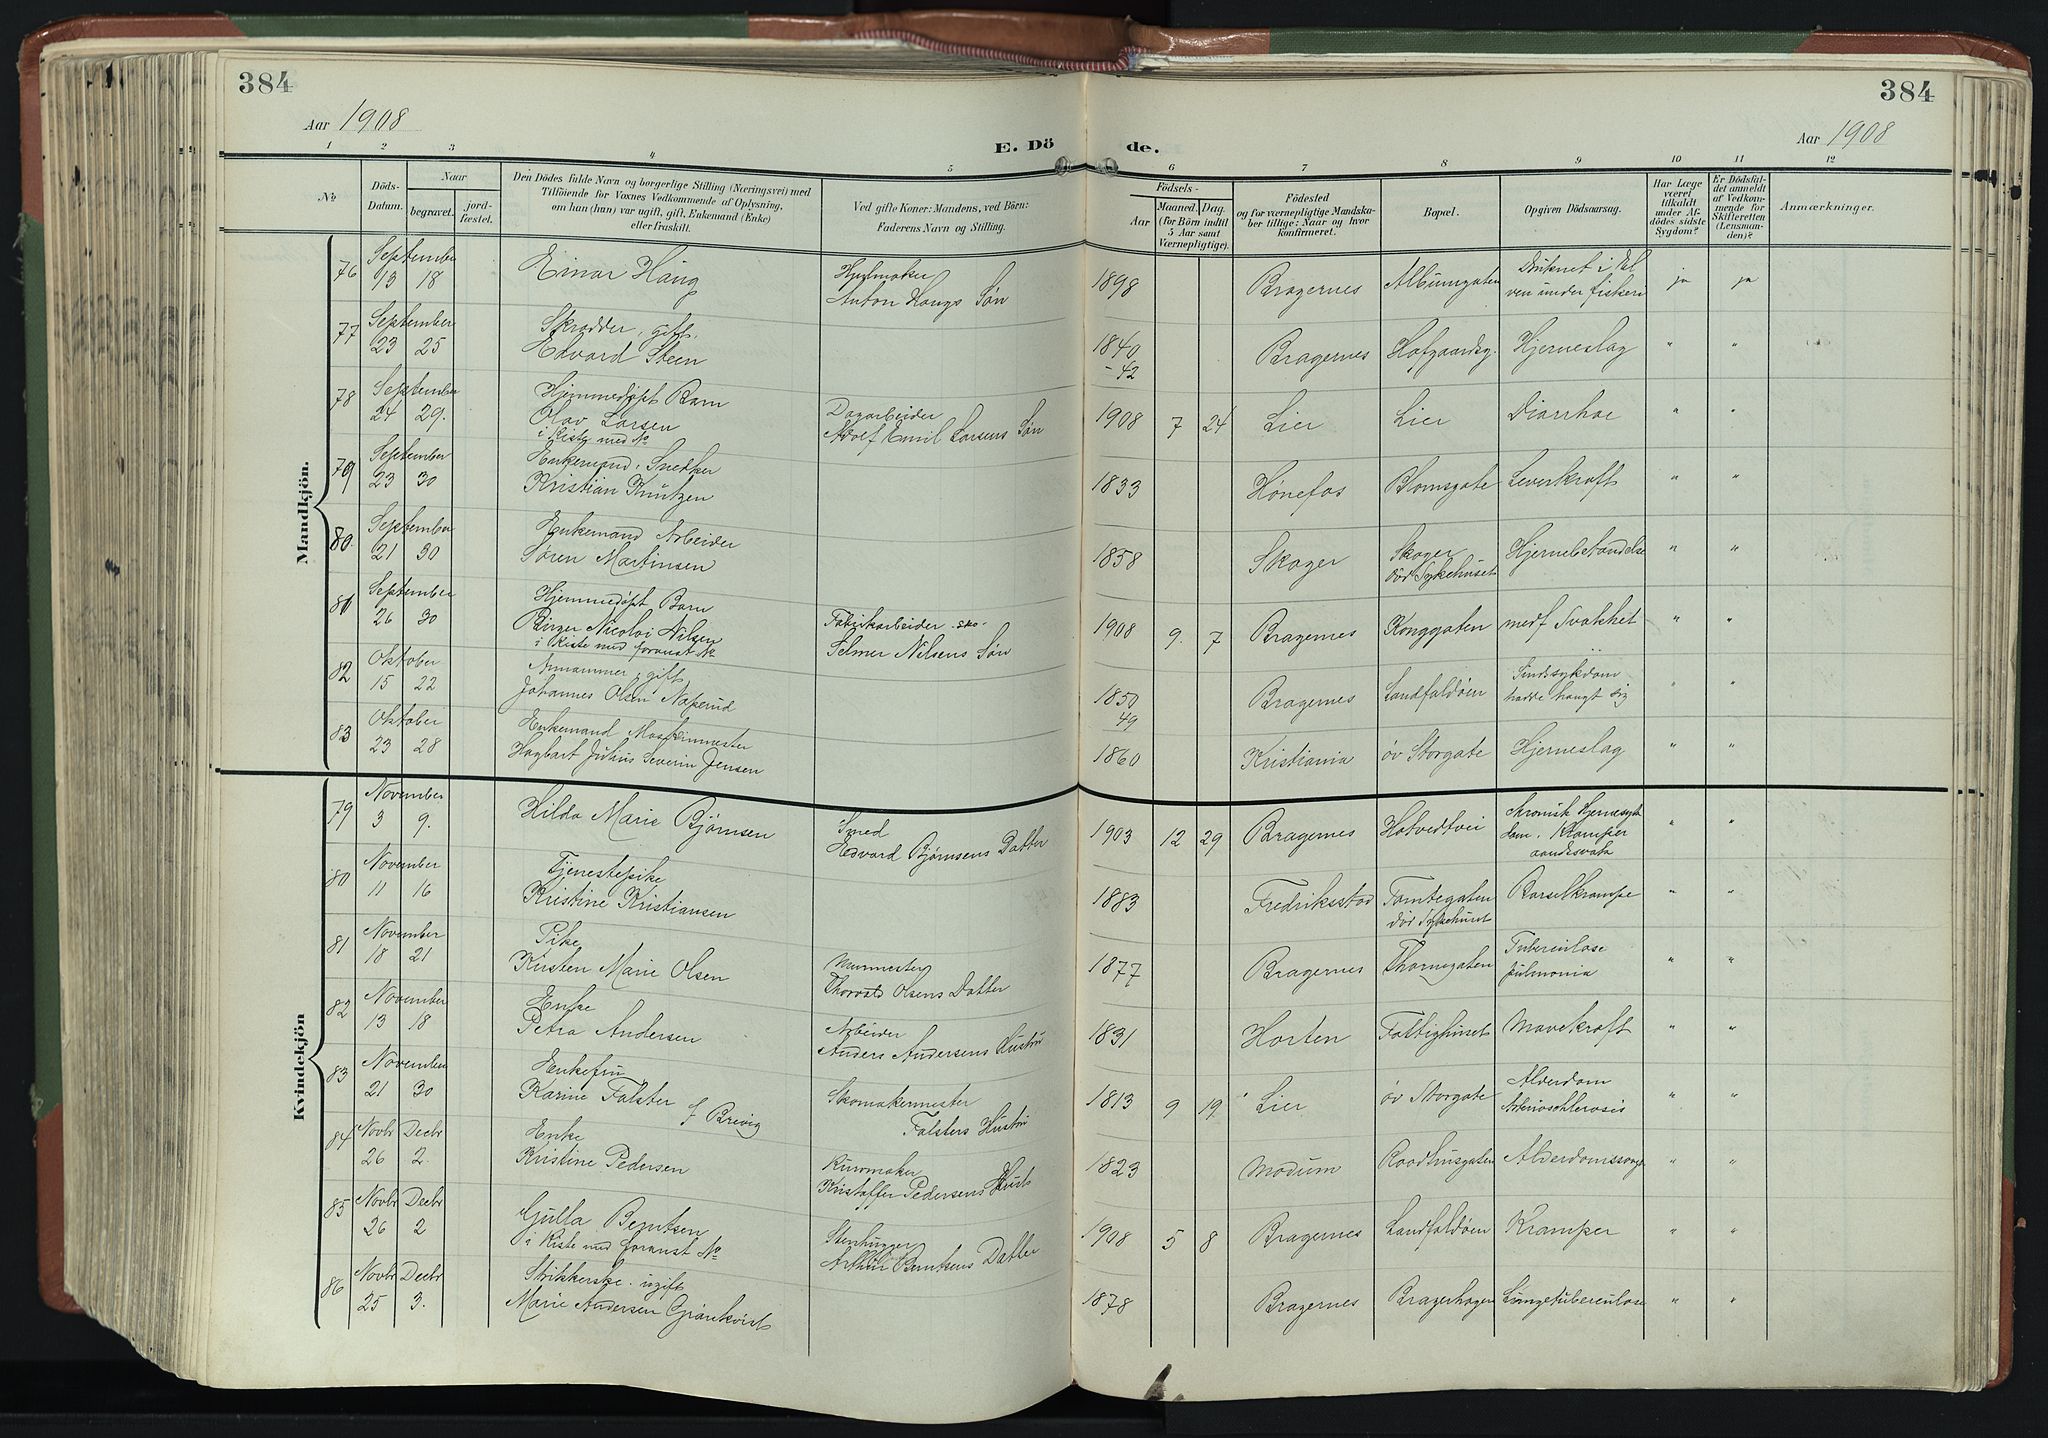 384
384
Aar 1908
Aar 1908
E. Dö
de.
1 2 3 4 5 6 7 8 9 10 11 12
No
Döds-
Datum.
Naar
begravet.
jord-
fæstet.
Den Dödes fulde Navn og borgerlige Stilling (Næringsvei) med
Tilföiende for Voxnes Vedkommende af Oplysning,
om han (hun) var ugift, gift, Enkemand (Enke)
eller fraskilt.
Ved gifte Koner: Mandens, ved Börn:
Faderens Navn og Stilling.
Födsels-
Aar
Maaned. Dag.
(for Börn indtil
5 Aar samt
Værnepligtige).
Födested
og for værnepligtige Mandska-
ber tillige: Naar og hvor
konfirmeret.
Bopæl.
Opgiven Dödsaarsag.
Har Læge
været
tilkaldt
under Af-
dödes sidste
Sygdom?
Er Dödsfal-
det anmeldt
af Vedkom-
mende for
Skifteretten
(Lensman-
den)?
Anmærkninger.
Mandkjön.
76 September
13 18
Einar Haug
Hjulmaker
Anton Haugs Søn
1898 Bragernes Albumgaten
Druknet i El
ven under fiskeri
ja ja
77 September
23 25
Skrædder, gift,
Edvard Steen
1840
-42
Bragernes Hofgaardsg. Hjerneslag " "
78 September
24 29.
Hjemmedøpt Barn
Olav Larsen
i Kiste med No
Dagarbeider
Adolf Emil Larsens Søn
1908 7 24 Lier Lier Diarrhoe " "
79 September
23 30
Enkemand, Snedker
Kristian Knutzen
1833 Hønefos Blomsgate Leverkræft " "
80. September
21 30
Enkemand Arbeider
Søren Martinsen
1858 Skoger
Skoger
død Sykehuset
Hjernebetændelse " "
81 September
26 30
Hjemmedøpt Barn
Birger Nicolai Nilsen
i Kiste med foranst No
Fabrikarbeider sko-
Selmer Nilsens Søn
1908 9. 7 Bragernes Konggaten medf Svakhet " "
82 Oktober
15 22
gift
Johannes Olsen Næperud
1850
49
Bragernes Landfaldøen
Sindssykdom
hadde hængt sig
" "
83 Oktober
23 28
Enkemand Maskinmester
Hagbart Julius Severin Jensen
1860 Kristiania øv Storgate Hjerneslag " "
Kvindekjön
79 November
3 9.
Hilda Marie Bjørnsen
Smed
Edvard Bjørnsens Datter
1903 12 29 Bragernes Hotvedtvei
Kronisk Hjernesyk
dom. Kramper
" "
80 November
11 16
Tjenestepike
Kristine Kristiansen
1883 Fredriksstad
Tomtegaten
død Sykehuset
Barselkrampe " "
81 November
18 21
Pike
Kirsten Marie Olsen
Murmester
Thorvald Olsens Datter
1877 Bragernes Thornegaten
Tuberculose
pulmonia
" "
82 November
13 18
Enke
Petra Andersen
Arbeider
Anders Andersens Hustru
1831 Horten Fattighuset Mavekræft " "
83 November
21 30
Enkefru
Karine Falster f Brevig
Skomakermester
Falsters Hustru
1813 9 19 Lier øv Storgate
Alderdom
Arterioschlerosis
" "
84 Novbr Decbr
26 2.
Enke
Kristine Pedersen
Kurvmaker
Kristoffer Pedersens Hust
1823 Modum Raadhusgaten " "
85 Novbr Decbr
26 2
Gulla Berntsen
i Kiste med foranst No
Stenhugger
Arthur Berntsens Datter
1908 5 8 Bragernes Landfaldøen Kramper " "
86 Novbr Decbr
25 3.
Strikkerske. ugift
Marie Andersen Grankvist
1878 Bragernes Bragerhagen Lungetuberculose " "